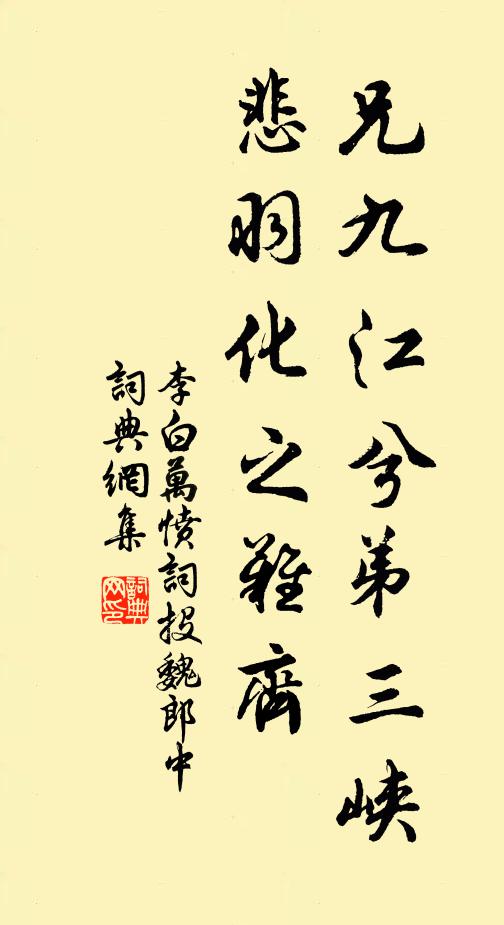 兄九江兮弟三峽
悲羽化之難齊
李白萬憤詞投魏郎中
詞典網集
詞典
網印